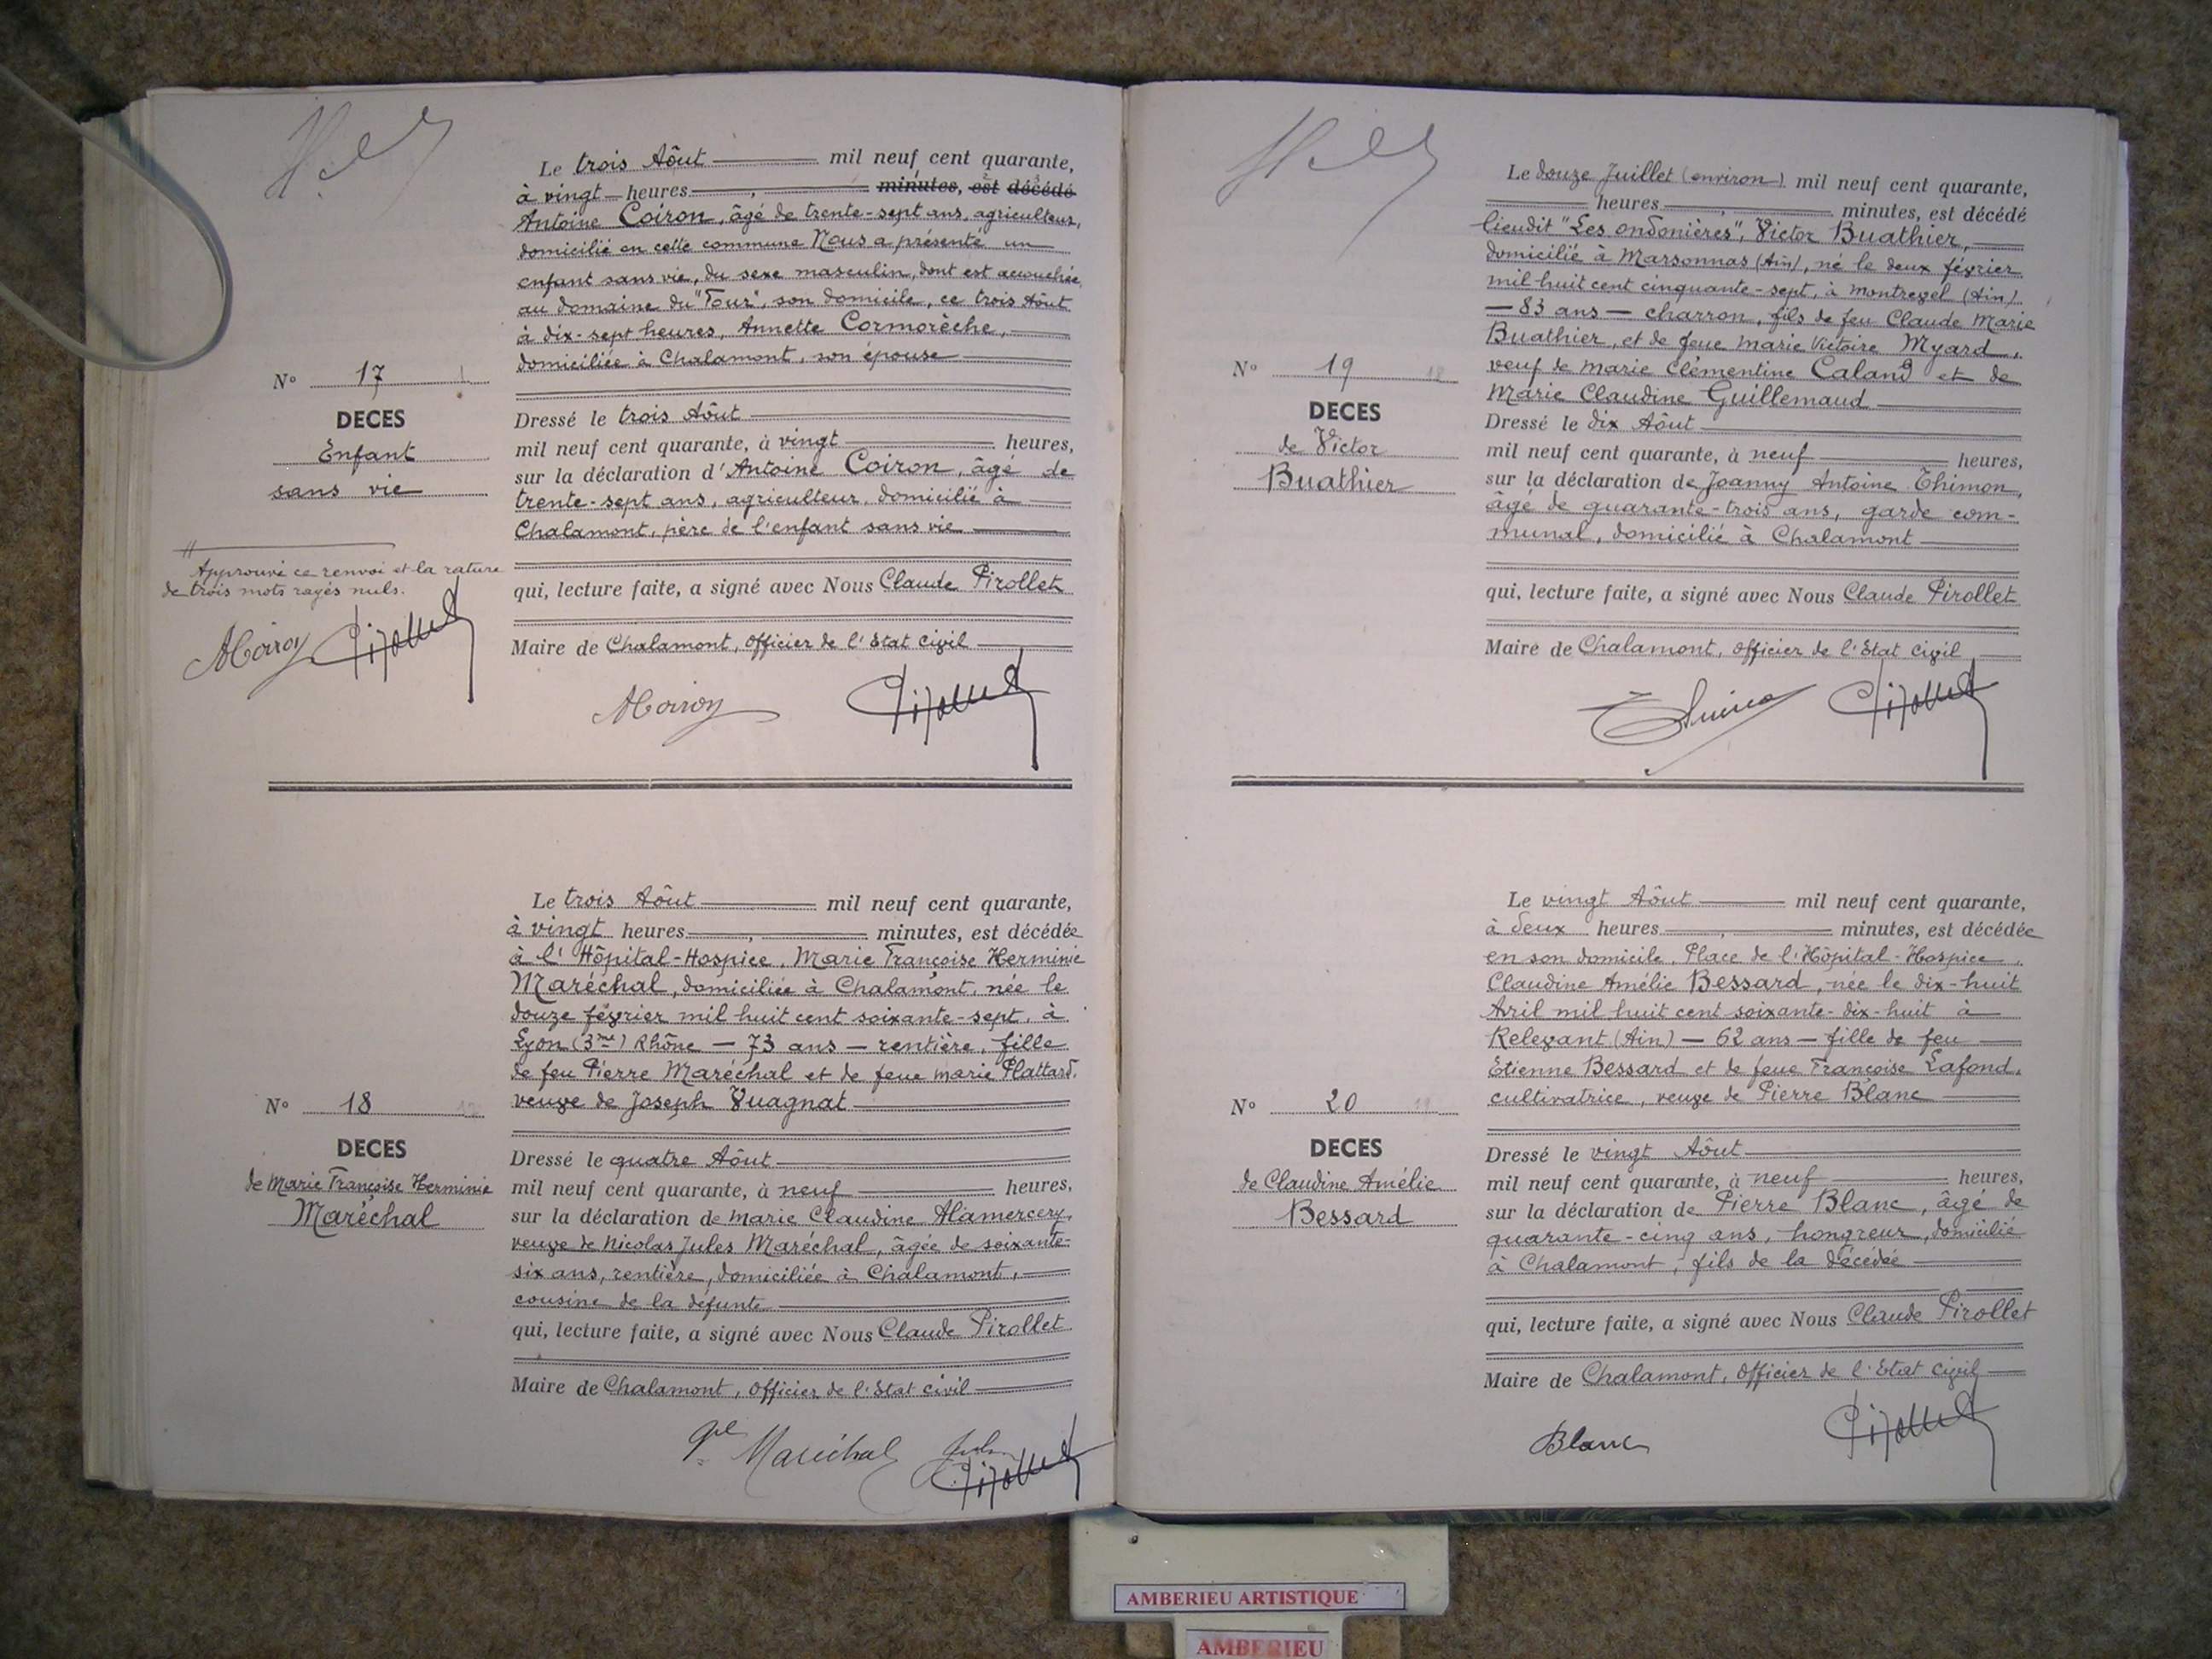 Le trois Aôut mil neuf cent quarante,
à vingt heures, minutes, est décédé
Antoine Coiron, âgé de trente-sept ans, agriculteur,
domicilié en cette commune Nous a présenté un
enfant sans vie, du sexe masculin, dont est accouchée,
au domaine du "Tour", son domicile, ce trois Aôut
à dix-sept heures, Annette Cormorèche,
domiciliée à Chalamont, son épouse
N° 17
DECES
Enfant
sans vie
Dressé le trois Aôut
mil neuf cent quarante, à vingt heures,
sur la déclaration d'Antoine Coiron, âgé de
trente-sept ans, agriculteur, domicilié à
Chalamont, père de l'enfant sans vie
Approuvé ce renvoi et la rature
de trois mots rayés nuls.
qui, lecture faite, a signé avec Nous Claude Pirollet
Maire de Chalamont, Officier de l'Etat Civil
Le trois Aôut mil neuf cent quarante,
à vingt heures, minutes, est décédée
à l'Hôpital-Hospice, Marie Françoise Herminie
Maréchal, domiciliée à Chalamont, née le
douze février mil huit cent soixante-sept, à
Lyon (3me) Rhône - 73 ans - rentière, fille
de feu Pierre Maréchal et de feue Marie Plattard,
veuve de Joseph Vuagnat
N° 18
DECES
de Marie Françoise Herminie
Maréchal
Dressé le quatre Aôut
mil neuf cent quarante, à neuf heures,
sur la déclaration de Marie Claudine Alamercery,
veuve de Nicolas Jules Maréchal, âgée de soixante-
six ans, rentière, domiciliée à Chalamont,
cousine de la défunte
qui, lecture faite, a signé avec Nous Claude Pirollet
Maire de Chalamont, Officier de l'Etat civil
Maréchal
Le douze Juillet (environ) mil neuf cent quarante,
heures, minutes, est décédé
lieudit "Les ondonières", Victor Buathier,
domicilié à Marsonnas (Ain), né le deux février
mil huit cent cinquante-sept, à Montrevel (Ain)
- 83 ans - charron, fils de feu Claude Marie
Buathier, et de feue Marie Victoire Myard,
veuf de Marie Clémentine Caland et de
Marie Claudine Guillemaud
N° 19
DECES
de Victor
Buathier
Dressé le dix Aôut
mil neuf cent quarante, à neuf heures,
sur la déclaration de Joanny Antoine Thimon,
âgé de quarante-trois ans, garde com-
munal, domicilié à Chalamont
qui, lecture faite, a signé avec Nous Claude Pirollet
Maire de Chalamont, Officier de l'Etat Civil
Le vingt Aôut mil neuf cent quarante,
à deux heures, minutes, est décédée
en son domicile, Place de l'Hôpital-Hospice,
Claudine Amélie Bessard, née le dix-huit
Avril mil huit cent soixante-dix-huit à
Relevant (Ain) - 62 ans - fille de feu
Etienne Bessard et de feue Françoise Lafond,
cultivatrice, veuve de Pierre Blanc
N° 20
DECES
de Claudine Amélie
Bessard
Dressé le vingt Aôut
mil neuf cent quarante, à neuf heures,
sur la déclaration de Pierre Blanc, âgé de
quarante-cinq ans, hongreur, domicilié
à Chalamont, fils de la décédée
qui, lecture faite, a signé avec Nous Claude Pirollet
Maire de Chalamont, Officier de l'Etat Civil
Blanc
AMBERIEU ARTISTIQUE
AMBERIEU